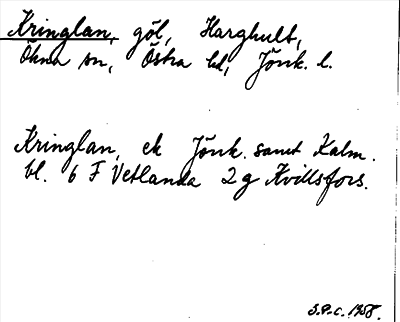 Kringlan, göl, Harghult,
Ökna sn, Östra hd, Jönk. l.
Kringlan, ek Jönk. samt Kalm.
bl. 6 F Vetlanda 2 g Kvillsfors.
S.P-c. 1958.